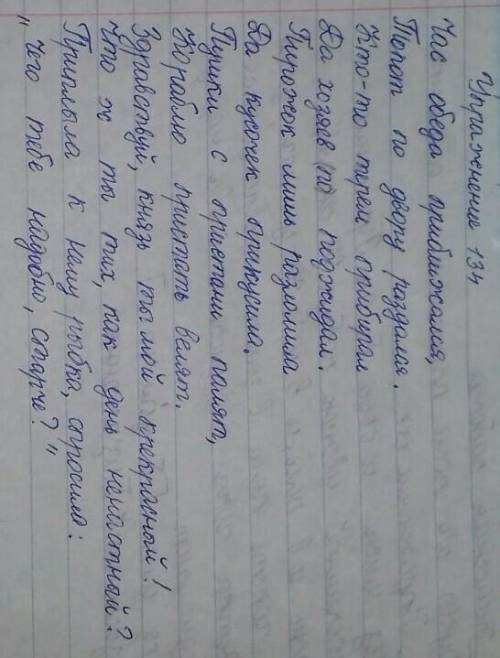 Упражнение 134
Час обеда приближался,
Топот по двору раздался.
Кто-то терем прибирал
Да хозяев поджидал.
Пирожок лишь разломила
Да кусочек прикусила.
Пушки с пристани палят,
Кораблю пристать велят.
Здравствуй, князь ты мой прекрасный!
Что ж ты тих, как день ненастный?
Приплыла к нему рыбка, спросила:
"Чего тебе надобно, старче?"